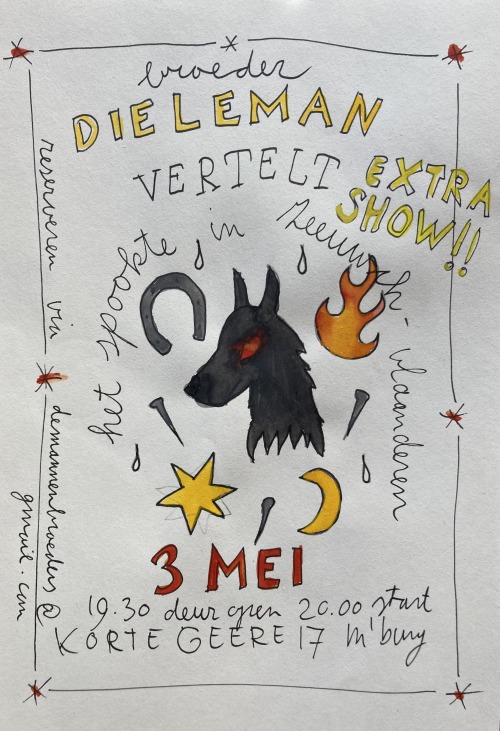 broeder
DIELEMAN
VERTELT
EXTRA
SHOW!!
zy spookte in Zeeuwsch-vlaanderen
reserveren via demannenbroeders@
gmail.com
3 MEI
19.30 deur open 20.00 start
KORTE GEERE 17 M'burg